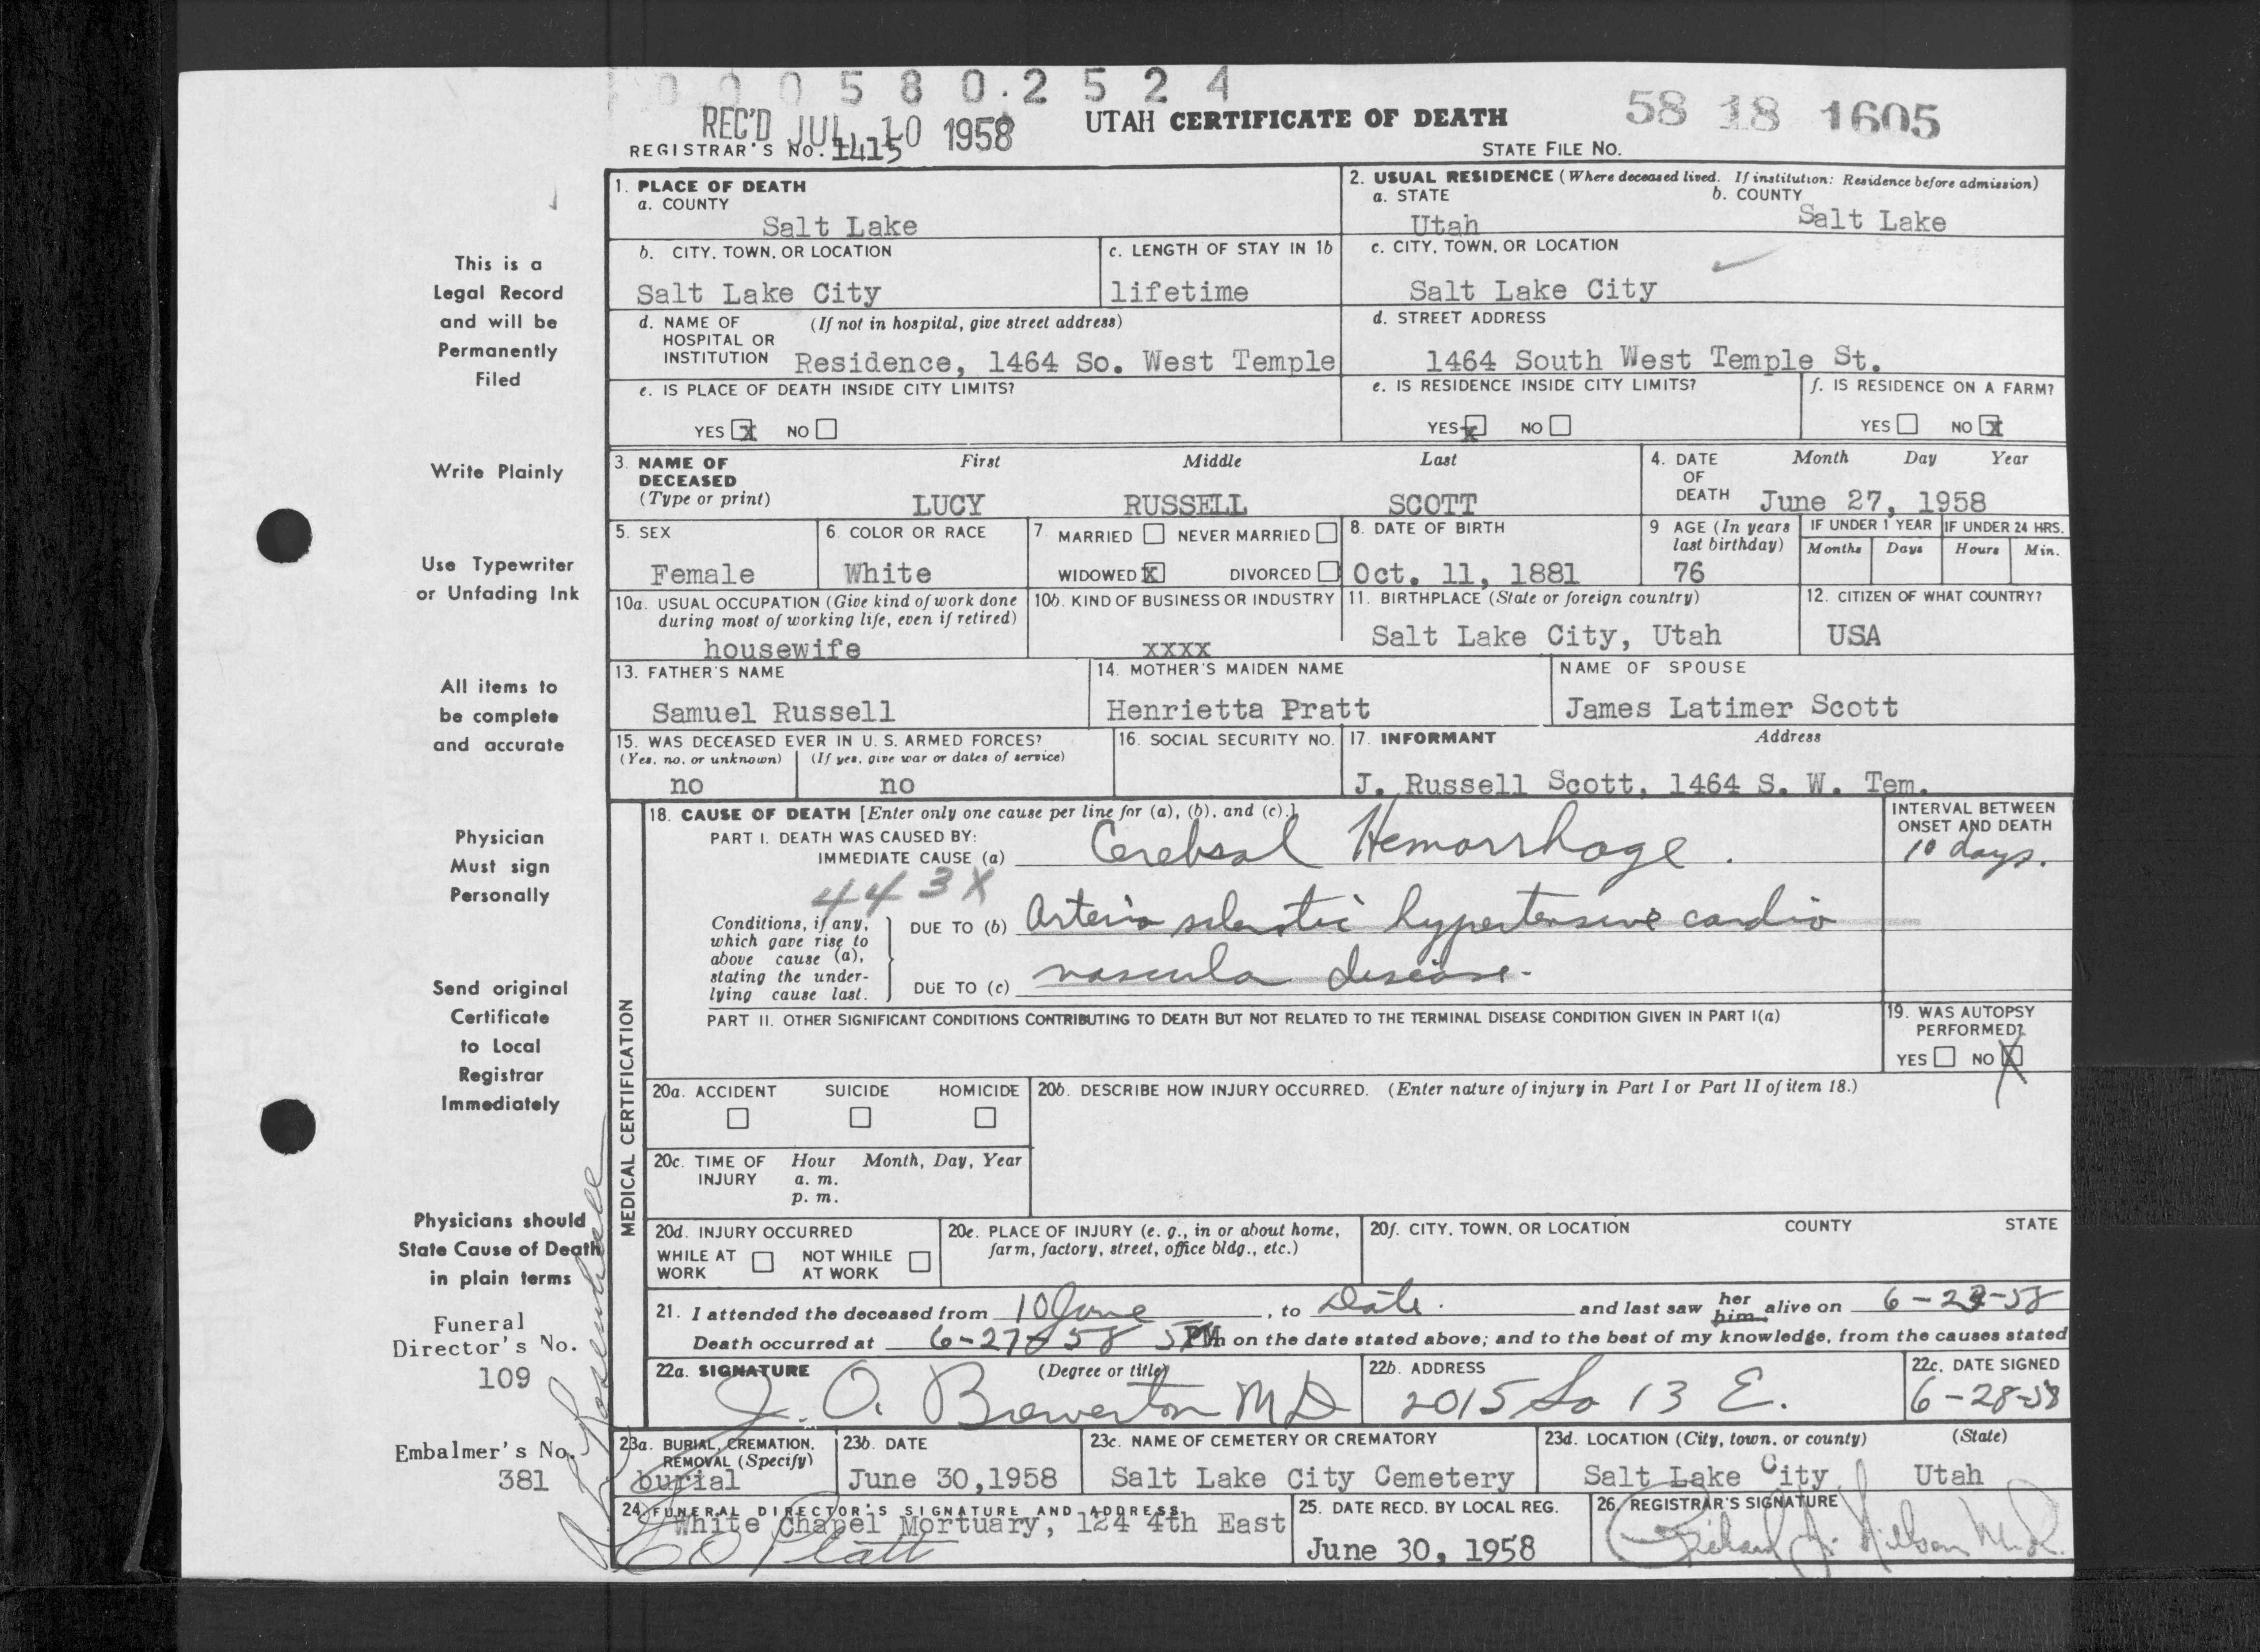 0 0 0 5 8 0 . 2 5 2 4
REC'D JUL 10 1958
UTAH CERTIFICATE OF DEATH
58 18 1605
REGISTRAR'S NO. 1415
STATE FILE NO.
1. PLACE OF DEATH
a. COUNTY
Salt Lake
2. USUAL RESIDENCE (Where deceased lived. If institution: Residence before admission)
a. STATE b. COUNTY
Utah Salt Lake
b. CITY, TOWN, OR LOCATION
Salt Lake City
c. LENGTH OF STAY IN 1b
lifetime
c. CITY, TOWN, OR LOCATION
Salt Lake City
d. NAME OF (If not in hospital, give street address)
HOSPITAL OR
INSTITUTION Residence, 1464 So. West Temple
d. STREET ADDRESS
1464 South West Temple St.
e. IS PLACE OF DEATH INSIDE CITY LIMITS?
YES X NO
e. IS RESIDENCE INSIDE CITY LIMITS?
YES x NO
f. IS RESIDENCE ON A FARM?
YES NO X
3. NAME OF First Middle Last
DECEASED
(Type or print)
LUCY RUSSELL SCOTT
4. DATE Month Day Year
OF
DEATH June 27, 1958
5. SEX
Female
6. COLOR OR RACE
White
7. MARRIED NEVER MARRIED
WIDOWED X DIVORCED
8. DATE OF BIRTH
Oct. 11, 1881
9 AGE (In years
last birthday)
76
IF UNDER 1 YEAR
Months Days
IF UNDER 24 HRS.
Hours Min.
10a. USUAL OCCUPATION (Give kind of work done
during most of working life, even if retired)
housewife
10b. KIND OF BUSINESS OR INDUSTRY
xxxx
11. BIRTHPLACE (State or foreign country)
Salt Lake City, Utah
12. CITIZEN OF WHAT COUNTRY?
USA
13. FATHER'S NAME
Samuel Russell
14. MOTHER'S MAIDEN NAME
Henrietta Pratt
NAME OF SPOUSE
James Latimer Scott
15. WAS DECEASED EVER IN U. S. ARMED FORCES?
(Yes, no, or unknown) (If yes, give war or dates of service)
no no
16. SOCIAL SECURITY NO.
17. INFORMANT Address
J. Russell Scott, 1464 S. W. Tem.
MEDICAL CERTIFICATION
18. CAUSE OF DEATH [Enter only one cause per line for (a), (b), and (c).]
PART I. DEATH WAS CAUSED BY:
IMMEDIATE CAUSE (a) Cerebral Hemorrhage.
INTERVAL BETWEEN
ONSET AND DEATH
10 days.
443X
Conditions, if any,
which gave rise to
above cause (a),
stating the under-
lying cause last.
DUE TO (b) Arterio sclerotic hypertensive cardio
DUE TO (c) vascular disease.
PART II. OTHER SIGNIFICANT CONDITIONS CONTRIBUTING TO DEATH BUT NOT RELATED TO THE TERMINAL DISEASE CONDITION GIVEN IN PART I(a)
19. WAS AUTOPSY
PERFORMED?
YES NO X
20a. ACCIDENT SUICIDE HOMICIDE
20b. DESCRIBE HOW INJURY OCCURRED. (Enter nature of injury in Part I or Part II of item 18.)
20c. TIME OF Hour Month, Day, Year
INJURY a. m.
p. m.
20d. INJURY OCCURRED
WHILE AT NOT WHILE
WORK AT WORK
20e. PLACE OF INJURY (e. g., in or about home,
farm, factory, street, office bldg., etc.)
20f. CITY, TOWN, OR LOCATION COUNTY STATE
21. I attended the deceased from 10 June, to Date. and last saw her him alive on 6-23-58
Death occurred at 6-27-58 5 PM m on the date stated above; and to the best of my knowledge, from the causes stated
22a. SIGNATURE (Degree or title)
J. O. Brewerton MD
22b. ADDRESS
2015 So 13 E.
22c. DATE SIGNED
6-28-58
23a. BURIAL, CREMATION,
REMOVAL (Specify)
burial
23b. DATE
June 30,1958
23c. NAME OF CEMETERY OR CREMATORY
Salt Lake City Cemetery
23d. LOCATION (City, town, or county) (State)
Salt Lake City, Utah
24. FUNERAL DIRECTOR'S SIGNATURE AND ADDRESS
White Chapel Mortuary, 124 4th East
Platt
25. DATE RECD. BY LOCAL REG.
June 30, 1958
26. REGISTRAR'S SIGNATURE
Richard J. Nilson M.D.
This is a
Legal Record
and will be
Permanently
Filed
Write Plainly
Use Typewriter
or Unfading Ink
All items to
be complete
and accurate
Physician
Must sign
Personally
Send original
Certificate
to Local
Registrar
Immediately
Physicians should
State Cause of Death
in plain terms
Funeral
Director's No.
109
Embalmer's No.
381